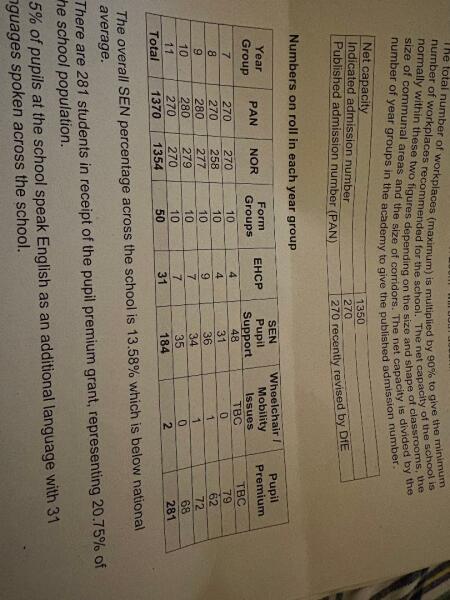 The total number of
number of workplaces (maximum) is multiplied by 90% to give the minimum
number of workplaces recommended for the school. The net capacity of the school is
normally within these two figures depending on the size and shape of classrooms, the
size of communal areas and the size of corridors. The net capacity is divided by the
number of year groups in the academy to give the published admission number.
Net capacity 1350
Indicated admission number 270
Published admission number (PAN) 270 recently revised by DfE
Numbers on roll in each year group
Year Group PAN NOR Form Groups EHCP SEN Pupil Support Wheelchair / Mobility Issues Pupil Premium
7 270 270 10 4 48 TBC TBC
8 270 258 10 4 31 0 79
9 280 277 10 9 36 1 62
10 280 279 10 7 34 1 72
11 270 270 10 7 35 0 68
Total 1370 1354 50 31 184 2 281
The overall SEN percentage across the school is 13.58% which is below national
average.
There are 281 students in receipt of the pupil premium grant, representing 20.75% of
he school population.
5% of pupils at the school speak English as an additional language with 31
nguages spoken across the school.